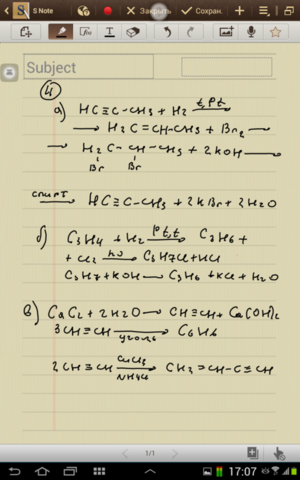 S Note
Закрыть
Сохран.
Subject
4
а) HC≡C-CH3 + H2 t,Pt→
→ H2C=CH-CH3 + Br2 —
→ H2C-CH-CH3 + 2KOH →
Br Br
спирт→ HC≡C-CH3 + 2KBr + 2H2O
б) C3H4 + H2 Pt,t→ C3H6 +
+ Cl2 hν→ C3H7Cl + HCl
C3H7 + KOH → C3H6 + KCl + H2O
в) CaC2 + 2H2O → CH≡CH + Ca(OH)2
3CH≡CH уголь→ C6H6
2CH≡CH NH4Cl→ CH2=CH-C≡CH
1/1
17:07